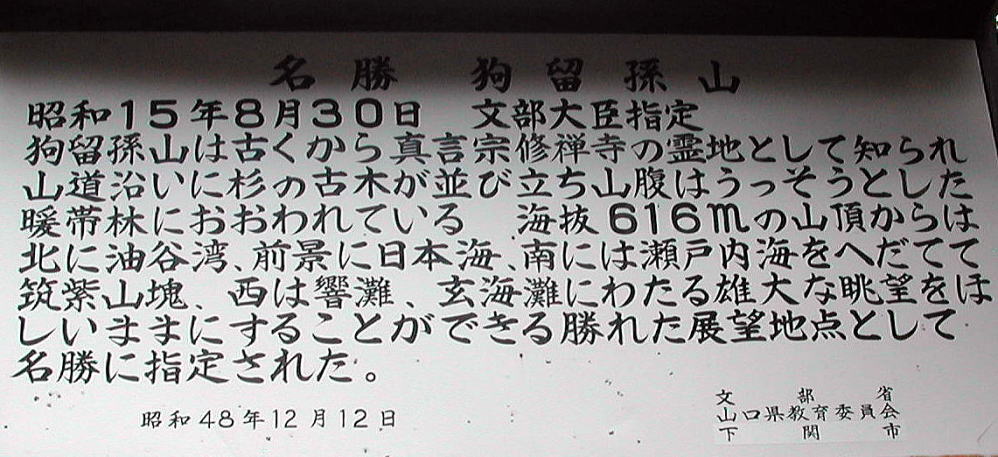 名勝 狗留孫山
昭和15年8月30日 文部大臣指定
狗留孫山は古くから真言宗修禅寺の霊地として知られ
山道沿いに杉の古木が並び立ち山腹はうっそうとした
暖帯林におおわれている 海抜616mの山頂からは
北に油谷湾、前景に日本海、南には瀬戸内海をへだてて
筑紫山塊、西は響灘、玄海灘にわたる雄大な眺望をほ
しいままにすることができる勝れた展望地点として
名勝に指定された。
昭和48年12月12日
文部省
山口県教育委員会
下関市